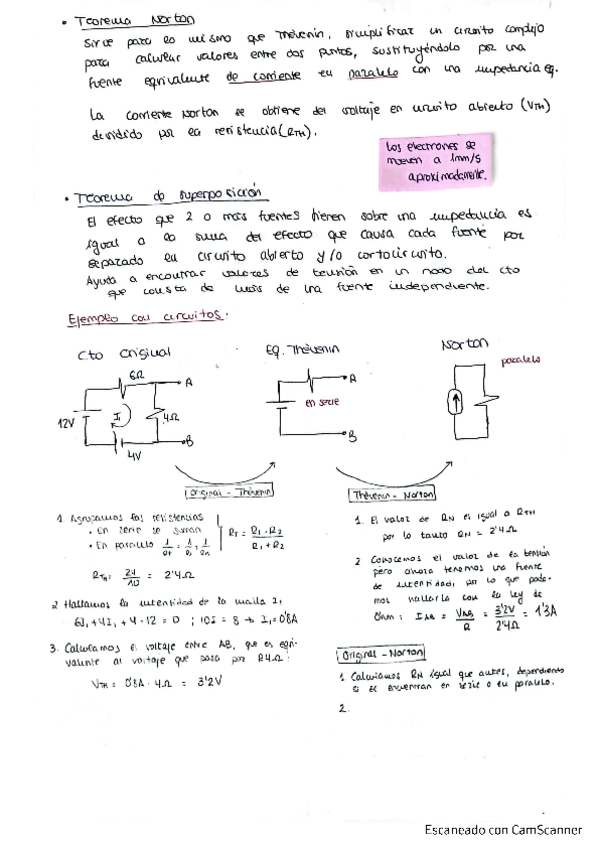 • Teorema Norton
Sirve para lo mismo que Thévenin, simplificar un circuito complejo
para calcular valores entre dos puntos, sustituyéndolo por una
fuente equivalente de corriente en paralelo con una impedancia eq.
La corriente Norton se obtiene del voltaje en circuito abierto (VTH)
dividido por la resistencia (RTH).
Los electrones se
mueven a 1mm/s
aproximadamente.
• Teorema de superposición
El efecto que 2 o más fuentes tienen sobre una impedancia es
igual a la suma del efecto que causa cada fuente por
separado en circuito abierto y/o cortocircuito.
Ayuda a encontrar valores de tensión en un nodo del cto
que consta de más de una fuente independiente.
Ejemplo con circuitos:
Cto Original
Eq. Thévenin
Norton
paralelo
6Ω
A
I1
4Ω
12V
4V
B
A
en serie
B
Original - Thévenin
Thévenin - Norton
1. Agrupamos las resistencias
• En serie se suman
• En paralelo
RT = R1·R2 / R1+R2
RTH = 24/10 = 2'4Ω
2 Hallamos la intensidad de la malla I1
6I1 + 4I1 + 4 - 12 = 0 ; 10I = 8 → I1 = 0'8A
3. Calculamos el voltaje entre AB, que es equi-
valente al voltaje que pasa por R4Ω:
VTH = 0'8A · 4Ω = 3'2V
1. El valor de RN es igual a RTH
por lo tanto RN = 2'4Ω
2 Conocemos el valor de la tensión
pero ahora tenemos una fuente
de intensidad, por lo que pode-
mos hallarla con la ley de
Ohm: IAB = VAB/R = 3'2V/2'4Ω = 1'3A
Original - Norton
1. Calculamos RN igual que antes, dependiendo
si se encuentran en serie o en paralelo.
2.
Escaneado con CamScanner